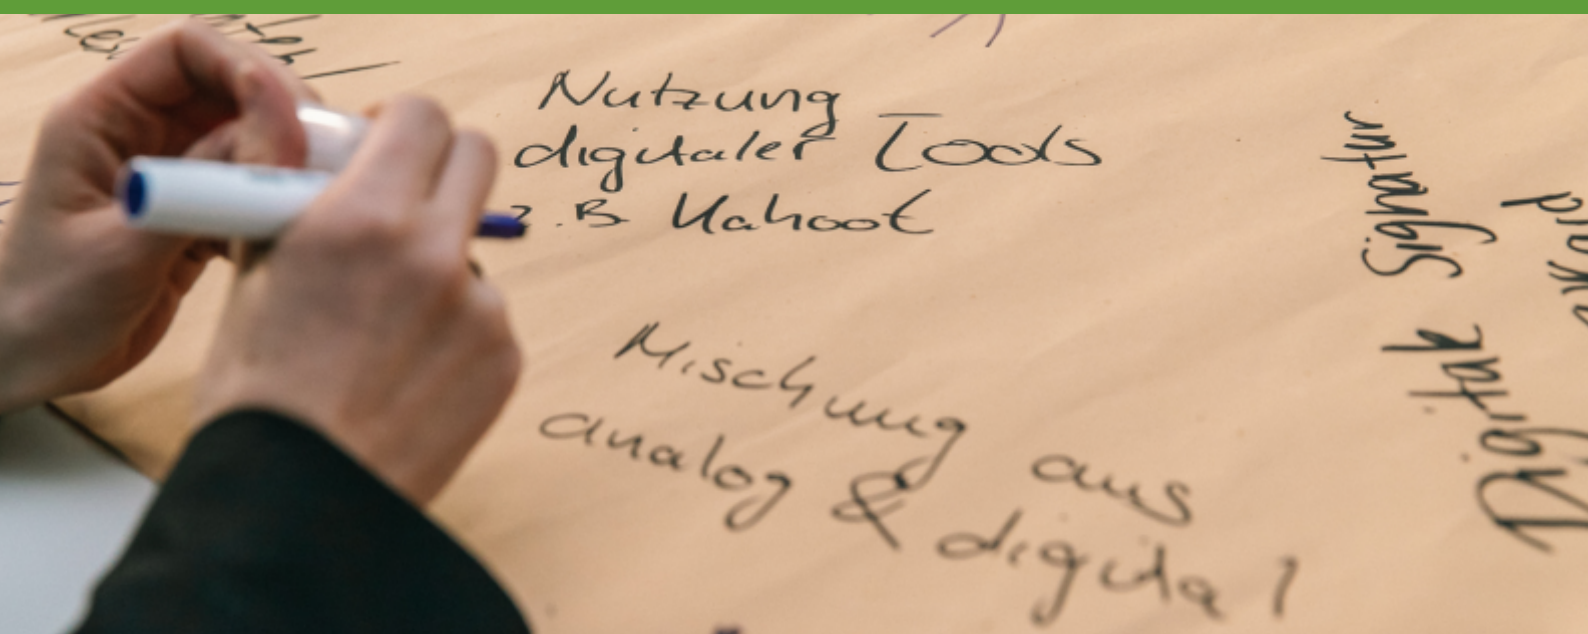 Nutzung
digitaler Tools
z.B. Kahoot
Mischung aus
analog & digital
Digitale
Signatur